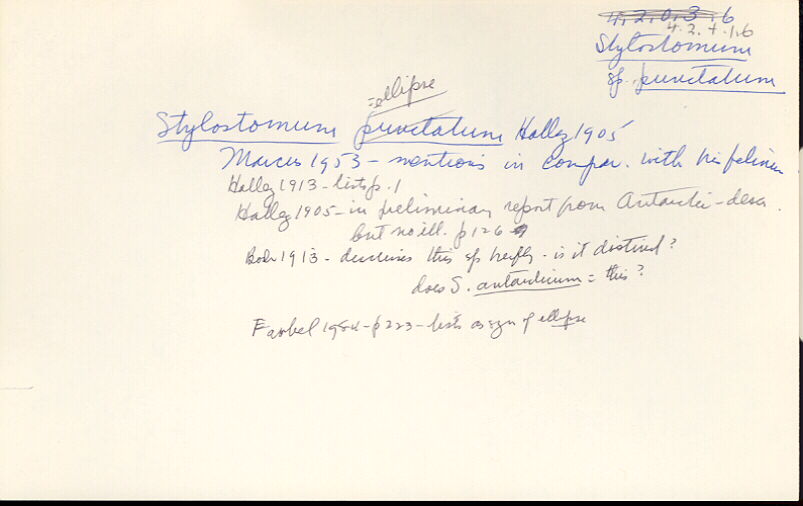 4.2.0.3.6
4.2.+.1.6
Stylostomum
sp. punctatum
=ellipse
Stylostomum punctatum Hallez 1905
Marcus 1953 - mentions in compar. with his felinum
Hallez 1913 - lists p. 1
Hallez 1905 - in preliminary report from Antarctic - descr.
but no ill. p 126
Bock 1913 - discusses this sp briefly - is it distinct?
does S. antarcticum = this?
Faubel 1984 - p 223 - lists as syn of ellipse